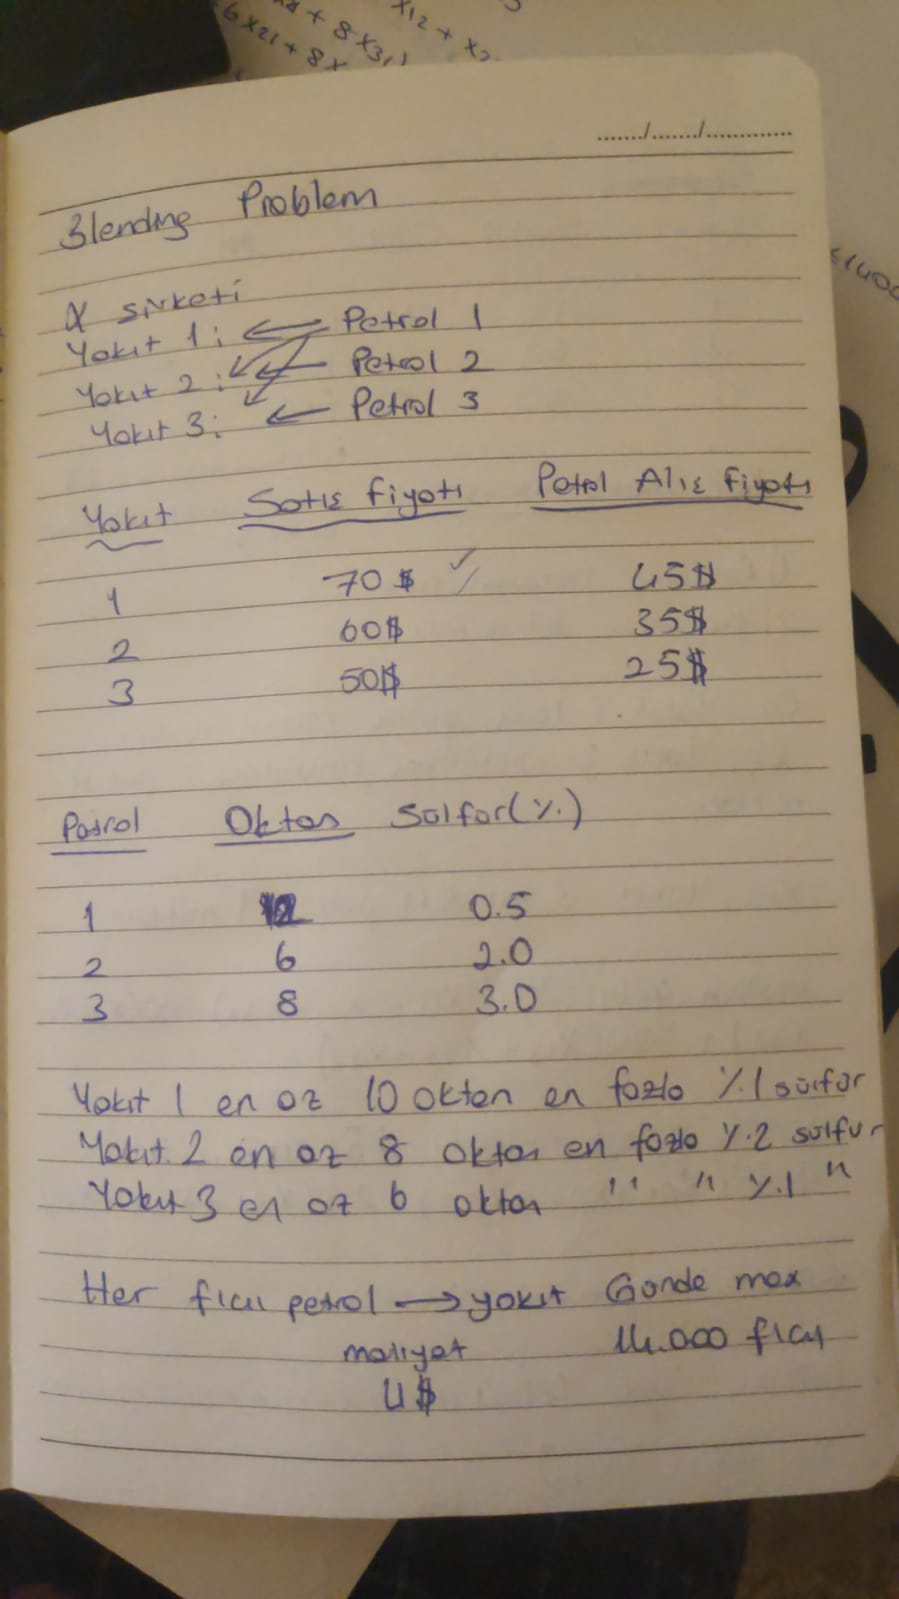 x12 + x2
6x21 + 8x
+ 8x31
≤1400
....../....../............
Blending Problem
α şirketi
Yakıt 1: Petrol 1
Yakıt 2: Petrol 2
Yakıt 3: Petrol 3
Yakıt Satış fiyatı Petrol Alış fiyatı
1 70$ 45$
2 60$ 35$
3 50$ 25$
Petrol Oktan Sülfür(%)
1 12 0.5
2 6 2.0
3 8 3.0
Yakıt 1 en az 10 oktan en fazla %1 sülfür
Yakıt 2 en az 8 oktan en fazla %2 sülfür
Yakıt 3 en az 6 oktan " " %1 "
Her fıçı petrol → yakıt Günde max
maliyet 14.000 fıçı
4$